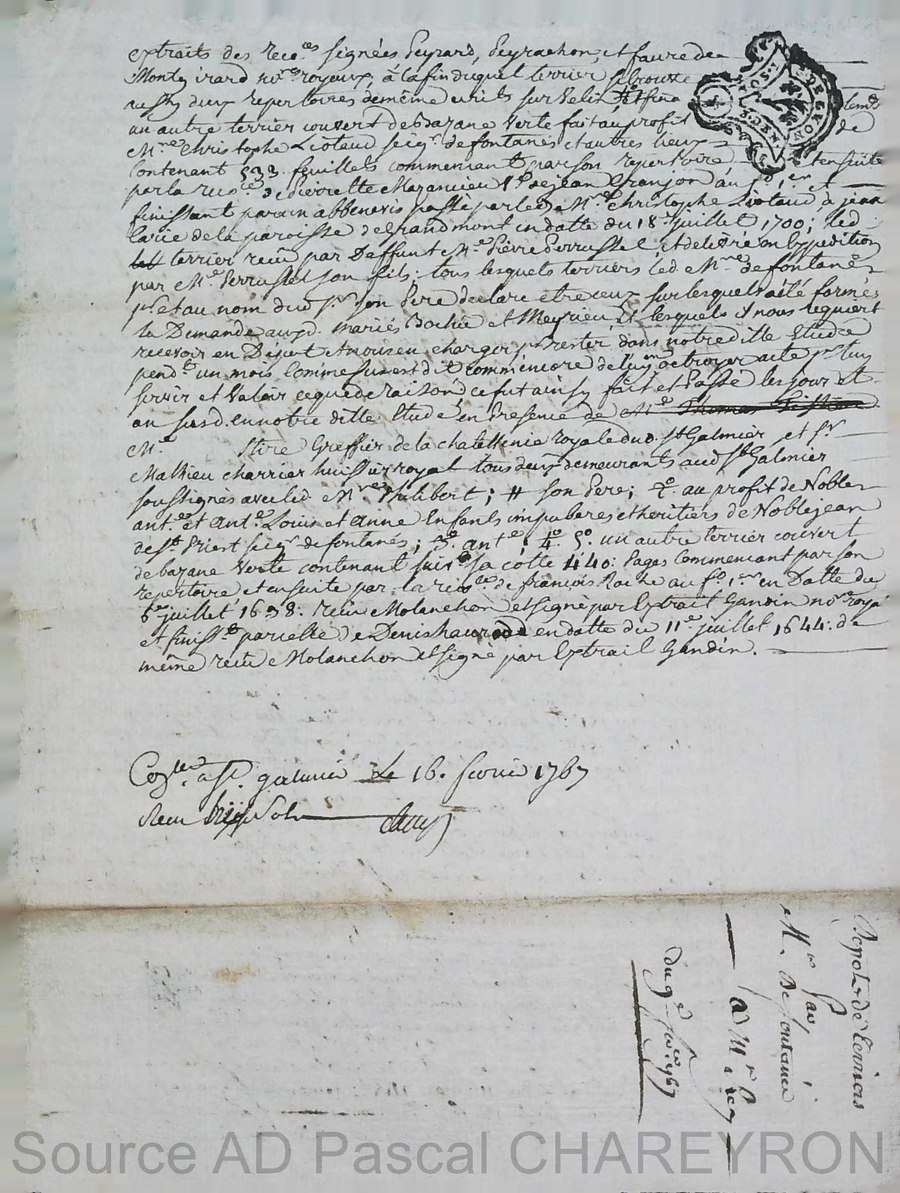 extraits des rec.es signées Peyrard, Peyrachon, et faure de
Montg irard no.res royeux, à la fin duquel terrier se trouve
deux repertoires de même ecrits sur velin et fina lem.t
un autre terrier couvert de bazane verte fait au profit de
M.re Christophe Liotaud seig.r de fontanes et autres lieux
Contenant 533 feuillets commencant par son repertoire et ensuite
par la rec.ce de Pierrette Mazancieu v.e de jean Granjon au f.o 1.er et
finissant par un abbenevis passé par led. M.re Christophe Liotaud à jean
larie de la paroisse de Grandmont en datte du 18.e juillet 1700; led.
terrier recu par Deffunt M.e Pierre Perrussel et delivré en Expedition
par M.e Perrussel son fils; tous lesquels terriers led M.re de fontanes
p.r et au nom dud s.r son Pere declare etre ceux sur lesquels a été formée
la Demande auxd. mariés Bochu et Meyrieu et lesquels il nous requiert
recevoir en Dépot et nous en charger p.r rester dans notre ditte Etude
pend.t un mois comme sus est dit commencer de luy octroyer acte p.r luy
servir et valoir ce que de raison ce fut ainsy fait et Passé les jour et
an susd. en notre ditte Etude en Presence de M.e Thomas
M.e Greffier de la chatellenie royale dud. S.t Galmier et s.r
Mathieu charrier huissier royal tous deux demeurants aud S.t Galmier
soussignés avec led M.re Philibert; # son Pere; 2.o au profit de Nobles
ant.es et ant.e Louis et anne Enfants impuberes et heritiers de Noble jean
de S.t Priest seig.r de fontanes; 3.o ant.e; 4.o 5.o un autre terrier couvert
de bazane verte contenant suiv.t sa cotte 440: Pages Commencant par son
repertoire et ensuite par la rec.ce de françois au f.o 1.er en Datte du
6.e juillet 1638: recu Molanchon et signé par Extrait Gandin no.re royal
et finiss.t par celle de Denis en datte du 11.e juillet 1644: de
même recu Molanchon et signé par Extrait Gandin.
Con.lé a S.t galmier Le 16. fevrier 1767
Recu Sols
Depot de Terriers
par
M.re De fontanes
à M.e
du 9.e fev.er 1767
Source AD Pascal CHAREYRON